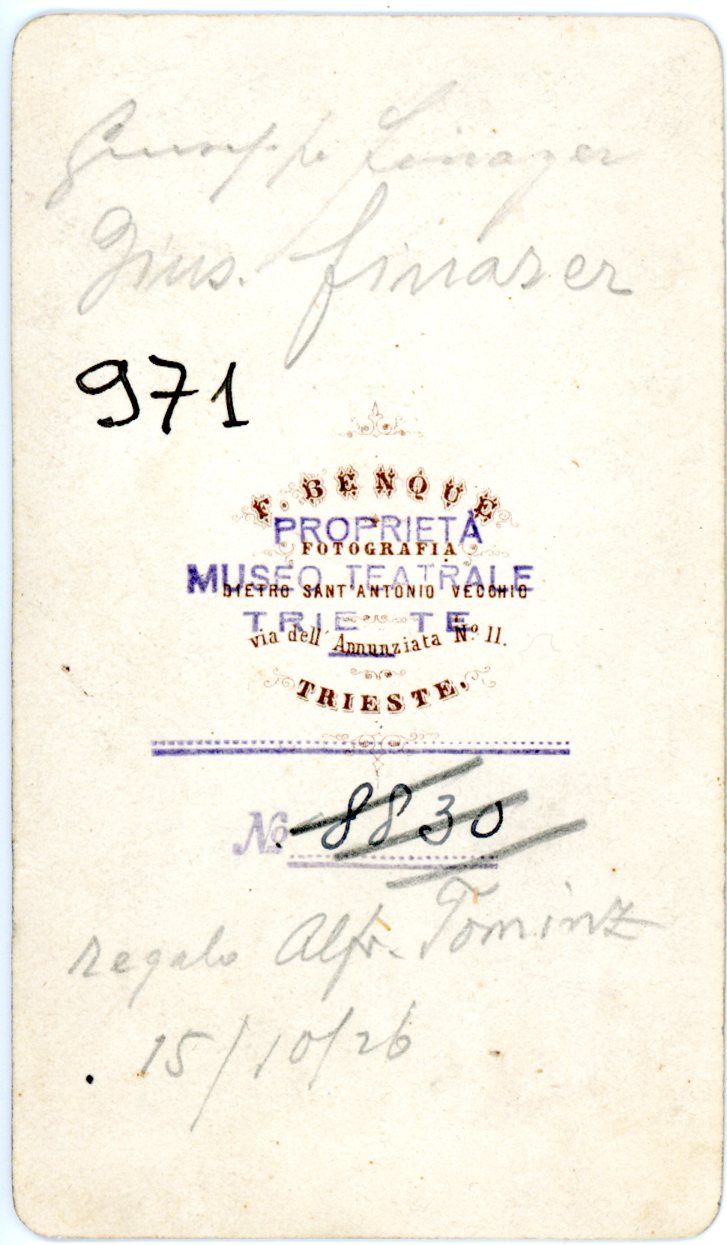 Giuseppe Finazer
Gius. Finazer
971
F. BENQUE
PROPRIETÀ
FOTOGRAFIA
MUSEO TEATRALE
DIETRO SANT'ANTONIO VECCHIO
TRIE TE
via dell'Annunziata Nº 11.
TRIESTE.
Nº 8830
regalo Alfr. Tominz
15/10/26